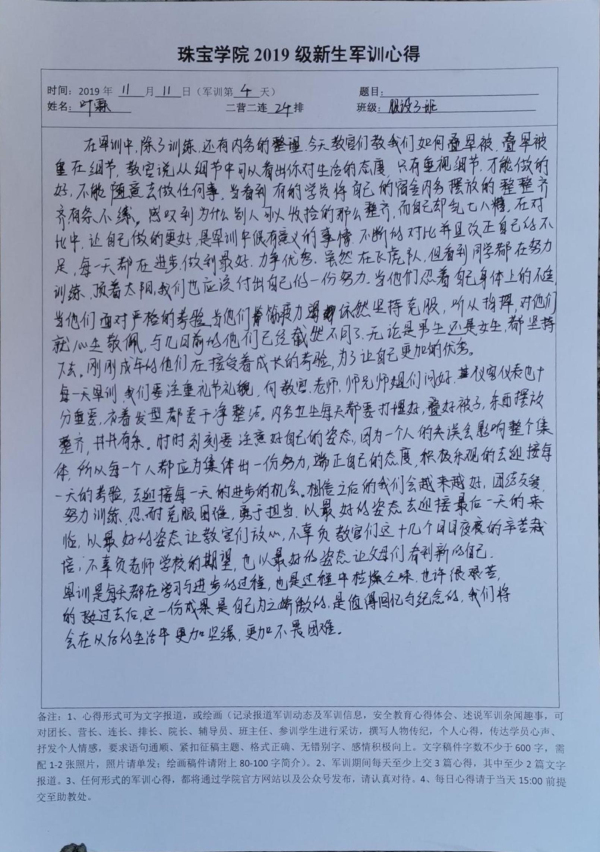 珠宝学院 2019 级新生军训心得
时间：2019 年 11 月 11 日（军训第 4 天） 题目：
姓名： 叶霖 二营二连 24 排 班级： 服设3班
在军训中，除了训练，还有内务的整理，今天教官们教我们如何叠军被，叠军被
重在细节，教官说从细节中可以看出你对生活的态度，只有重视细节，才能做的
好，不能随意去做任何事，当看到有的学员将自己的宿舍内务摆放的整整齐
齐有条不紊，感叹到为什么别人可以收捡的那么整齐，而自己却乱七八糟，在对
比中，让自己做的更好，是军训中很有意义的事情，不断的对比并且改正自己的不
足，每一天都在进步，做到最好，力争优秀。虽然在长虎队，但看到同学都在努力
训练，顶着太阳，我们也应该付出自己的一份努力。当他们忍着自己身体上的不适
当他们面对严格的考验，当他们疲力 依然坚持克服，听从指挥，对他们
就心生敬佩，与几日前的他们已经截然不同了，无论是男生还是女生，都坚持
下去。刚刚成年的他们在接受着成长的考验，为了让自己更加的优秀。
每一天军训，我们要注重礼节礼貌，向教官，老师，师兄师姐们问好，其仪容仪表也十
分重要，衣着发型都要干净整洁，内务卫生每天都要打理好，叠好被子，东西摆放
整齐，井井有条。时时刻刻要注意好自己的姿态，因为一个人的失误会影响整个集
体，所以每一个人都应为集体出一份努力，端正自己的态度，积极乐观的去迎接每
一天的考验，去迎接每一天的进步的机会。相信之后的我们会越来越好，团结友爱
努力训练，忍耐克服困难，勇于担当，以最好的姿态去迎接最后一天的来
临，以最好的姿态让教官们放心，不辜负教官们这十几个日日夜夜的辛苦栽
培，不辜负老师学校的期望，也以最好的姿态让父母们看到新的自己。
军训是每天都在学习与进步的过程，也是过程中检 ，也许很艰苦，
的 过去后，这一份成果是自己为之骄傲的，是值得回忆与纪念的，我们将
会在以后的生活中更加坚强，更加不畏困难。
备注：1、心得形式可为文字报道，或绘画（记录报道军训动态及军训信息，安全教育心得体会、述说军训杂闻趣事，可
对团长、营长、连长、排长、院长、辅导员、班主任、参训学生进行采访，撰写人物传纪，个人心得，传达学员心声、
抒发个人情感，要求语句通顺、紧扣征稿主题、格式正确、无错别字、感情积极向上。文字稿件字数不少于 600 字，需
配 1-2 张照片，照片请单发；绘画稿件请附上 80-100 字简介）。2、军训期间每天至少上交 3 篇心得，其中至少 2 篇文字
报道。3、任何形式的军训心得，都将通过学院官方网站以及公众号发布，请认真对待。4、每日心得请于当天 15:00 前提
交至助教处。